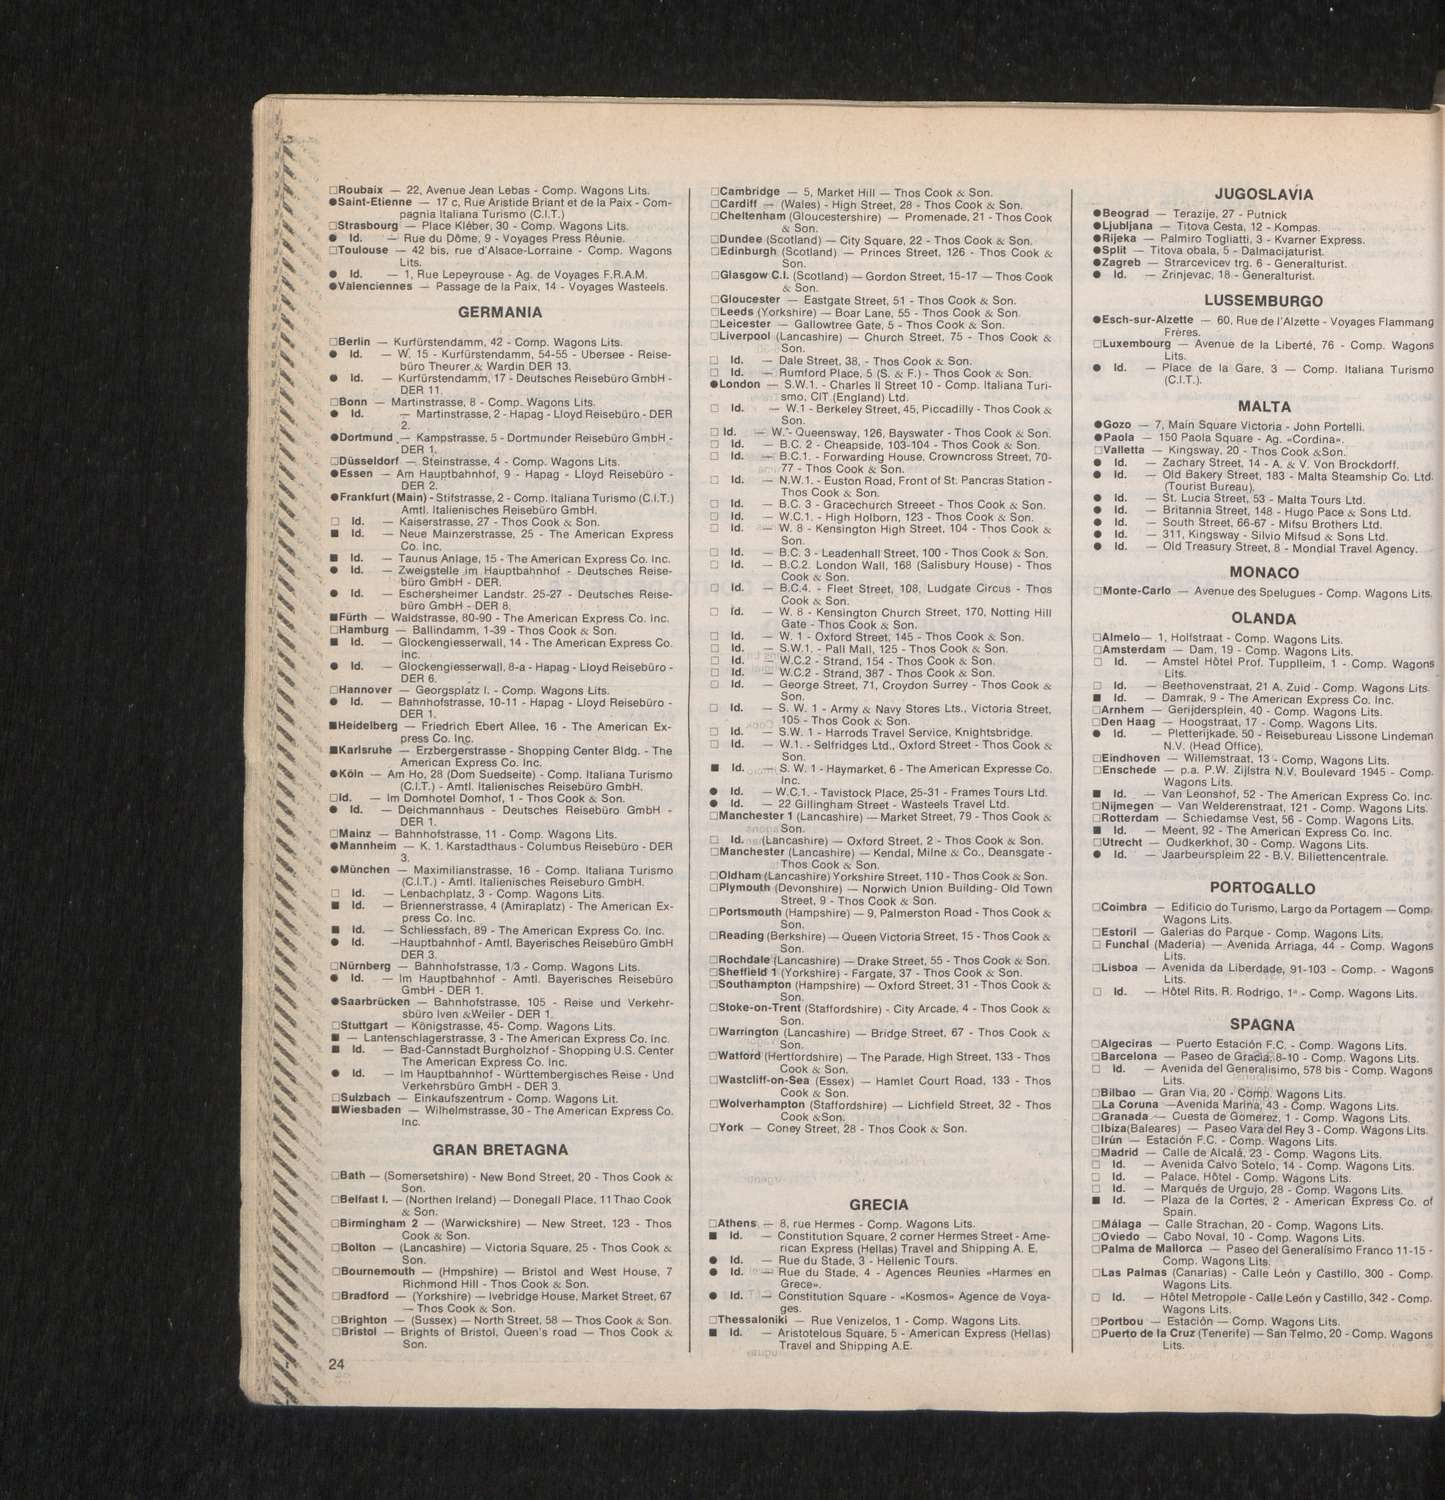 □Roubaix — 22, Avenue Jean Lebas - Comp. Wagons Lits.
●Saint-Etienne — 17 c, Rue Aristide Briant et de la Paix - Com-
pagnia Italiana Turismo (C.I.T.)
□Strasbourg — Place Kléber, 30 - Comp. Wagons Lits.
● Id. — Rue du Dôme, 9 - Voyages Press Réunie.
□Toulouse — 42 bis, rue d'Alsace-Lorraine - Comp. Wagons
Lits.
● Id. — 1, Rue Lepeyrouse - Ag. de Voyages F.R.A.M.
●Valenciennes — Passage de la Paix, 14 - Voyages Wasteels.
GERMANIA
□Berlin — Kurfürstendamm, 42 - Comp. Wagons Lits.
● Id. — W. 15 - Kurfürstendamm, 54-55 - Ubersee - Reise-
büro Theurer & Wardin DER 13.
● Id. — Kurfürstendamm, 17 - Deutsches Reisebüro GmbH -
DER 11.
□Bonn — Martinstrasse, 8 - Comp. Wagons Lits.
● Id. — Martinstrasse, 2 - Hapag - Lloyd Reisebüro - DER
2.
●Dortmund — Kampstrasse, 5 - Dortmunder Reisebüro GmbH -
DER 1.
□Düsseldorf — Steinstrasse, 4 - Comp. Wagons Lits.
●Essen — Am Hauptbahnhof, 9 - Hapag - Lloyd Reisebüro -
DER 2.
●Frankfurt (Main) - Stifstrasse, 2 - Comp. Italiana Turismo (C.I.T.)
Amtl. Italienisches Reisebüro GmbH.
□ Id. — Kaiserstrasse, 27 - Thos Cook & Son.
■ Id. — Neue Mainzerstrasse, 25 - The American Express
Co. Inc.
■ Id. — Taunus Anlage, 15 - The American Express Co. Inc.
● Id. — Zweigstelle im Hauptbahnhof - Deutsches Reise-
büro GmbH - DER.
● Id. — Eschersheimer Landstr. 25-27 - Deutsches Reise-
büro GmbH - DER 8.
■Fürth — Waldstrasse, 80-90 - The American Express Co. Inc.
□Hamburg — Ballindamm, 1-39 - Thos Cook & Son.
■ Id. — Glockengiesserwall, 14 - The American Express Co.
Inc.
● Id. — Glockengiesserwall, 8-a - Hapag - Lloyd Reisebüro -
DER 6.
□Hannover — Georgsplatz I. - Comp. Wagons Lits.
● Id. — Bahnhofstrasse, 10-11 - Hapag - Lloyd Reisebüro -
DER 1.
■Heidelberg — Friedrich Ebert Allee, 16 - The American Ex-
press Co. Inc.
■Karlsruhe — Erzbergerstrasse - Shopping Center Bldg. - The
American Express Co. Inc.
●Köln — Am Ho, 28 (Dom Suedseite) - Comp. Italiana Turismo
(C.I.T.) - Amtl. Italienisches Reisebüro GmbH.
□Id. — Im Domhotel Domhof, 1 - Thos Cook & Son.
● Id. — Deichmannhaus - Deutsches Reisebüro GmbH -
DER 1.
□Mainz — Bahnhofstrasse, 11 - Comp. Wagons Lits.
●Mannheim — K. 1. Karstadthaus - Columbus Reisebüro - DER
3.
●München — Maximilianstrasse, 16 - Comp. Italiana Turismo
(C.I.T.) - Amtl. Italienisches Reiseburo GmbH.
□ Id. — Lenbachplatz, 3 - Comp. Wagons Lits.
■ Id. — Briennerstrasse, 4 (Amiraplatz) - The American Ex-
press Co. Inc.
■ Id. — Schliessfach, 89 - The American Express Co. Inc.
● Id. —Hauptbahnhof - Amtl. Bayerisches Reisebüro GmbH
DER 3.
□Nürnberg — Bahnhofstrasse, 1/3 - Comp. Wagons Lits.
● Id. — Im Hauptbahnhof - Amtl. Bayerisches Reisebüro
GmbH - DER 1.
●Saarbrücken — Bahnhofstrasse, 105 - Reise und Verkehr-
sbüro Iven &Weiler - DER 1.
□Stuttgart — Königstrasse, 45- Comp. Wagons Lits.
■ — Lantenschlagerstrasse, 3 - The American Express Co. Inc.
■ Id. — Bad-Cannstadt Burgholzhof - Shopping U.S. Center
The American Express Co. Inc.
● Id. — Im Hauptbahnhof - Württembergisches Reise - Und
Verkehrsbüro GmbH - DER 3.
□Sulzbach — Einkaufszentrum - Comp. Wagons Lit.
■Wiesbaden — Wilhelmstrasse, 30 - The American Express Co.
Inc.
GRAN BRETAGNA
□Bath — (Somersetshire) - New Bond Street, 20 - Thos Cook &
Son.
□Belfast I. — (Northen Ireland) — Donegall Place, 11 Thao Cook
& Son.
□Birmingham 2 — (Warwickshire) — New Street, 123 - Thos
Cook & Son.
□Bolton — (Lancashire) — Victoria Square, 25 - Thos Cook &
Son.
□Bournemouth — (Hmpshire) — Bristol and West House, 7
Richmond Hill - Thos Cook & Son.
□Bradford — (Yorkshire) — Ivebridge House, Market Street, 67
— Thos Cook & Son.
□Brighton — (Sussex) — North Street, 58 — Thos Cook & Son.
□Bristol — Brights of Bristol, Queen's road — Thos Cook &
Son.
24
□Cambridge — 5, Market Hill — Thos Cook & Son.
□Cardiff — (Wales) - High Street, 28 - Thos Cook & Son.
□Cheltenham (Gloucestershire) — Promenade, 21 - Thos Cook
& Son.
□Dundee (Scotland) — City Square, 22 - Thos Cook & Son.
□Edinburgh (Scotland) — Princes Street, 126 - Thos Cook &
Son.
□Glasgow C.I. (Scotland) — Gordon Street, 15-17 — Thos Cook
& Son.
□Gloucester — Eastgate Street, 51 - Thos Cook & Son.
□Leeds (Yorkshire) — Boar Lane, 55 - Thos Cook & Son.
□Leicester — Gallowtree Gate, 5 - Thos Cook & Son.
□Liverpool (Lancashire) — Church Street, 75 - Thos Cook &
Son.
□ Id. — Dale Street, 38, - Thos Cook & Son.
□ Id. — Rumford Place, 5 (S. & F.) - Thos Cook & Son.
●London — S.W.1. - Charles II Street 10 - Comp. Italiana Turi-
smo, CIT (England) Ltd.
□ Id. — W.1 - Berkeley Street, 45, Piccadilly - Thos Cook &
Son.
□ Id. — W.- Queensway, 126, Bayswater - Thos Cook & Son.
□ Id. — B.C. 2 - Cheapside, 103-104 - Thos Cook & Son.
□ Id. — B.C.1. - Forwarding House, Crowncross Street, 70-
77 - Thos Cook & Son.
□ Id. — N.W.1. - Euston Road, Front of St. Pancras Station -
Thos Cook & Son.
□ Id. — B.C. 3 - Gracechurch Streeet - Thos Cook & Son.
□ Id. — W.C.1. - High Holborn, 123 - Thos Cook & Son.
□ Id. — W. 8 - Kensington High Street, 104 - Thos Cook &
Son.
□ Id. — B.C. 3 - Leadenhall Street, 100 - Thos Cook & Son.
□ Id. — B.C.2. London Wall, 168 (Salisbury House) - Thos
Cook & Son.
□ Id. — B.C.4. - Fleet Street, 108, Ludgate Circus - Thos
Cook & Son.
□ Id. — W. 8 - Kensington Church Street, 170, Notting Hill
Gate - Thos Cook & Son.
□ Id. — W. 1 - Oxford Street, 145 - Thos Cook & Son.
□ Id. — S.W.1. - Pall Mall, 125 - Thos Cook & Son.
□ Id. — W.C.2 - Strand, 154 - Thos Cook & Son.
□ Id. — W.C.2 - Strand, 387 - Thos Cook & Son.
□ Id. — George Street, 71, Croydon Surrey - Thos Cook &
Son.
□ Id. — S. W. 1 - Army & Navy Stores Lts., Victoria Street,
105 - Thos Cook & Son.
□ Id. — S.W. 1 - Harrods Travel Service, Knightsbridge.
□ Id. — W.1. - Selfridges Ltd., Oxford Street - Thos Cook &
Son.
■ Id. — S. W. 1 - Haymarket, 6 - The American Expresse Co.
Inc.
● Id. — W.C.1. - Tavistock Place, 25-31 - Frames Tours Ltd.
● Id. — 22 Gillingham Street - Wasteels Travel Ltd.
□Manchester 1 (Lancashire) — Market Street, 79 - Thos Cook &
Son.
□ Id. (Lancashire) — Oxford Street, 2 - Thos Cook & Son.
□Manchester (Lancashire) — Kendal, Milne & Co., Deansgate -
Thos Cook & Son.
□Oldham (Lancashire) Yorkshire Street, 110 - Thos Cook & Son.
□Plymouth (Devonshire) — Norwich Union Building- Old Town
Street, 9 - Thos Cook & Son.
□Portsmouth (Hampshire) — 9, Palmerston Road - Thos Cook &
Son.
□Reading (Berkshire) — Queen Victoria Street, 15 - Thos Cook &
Son.
□Rochdale (Lancashire) — Drake Street, 55 - Thos Cook & Son.
□Sheffield 1 (Yorkshire) - Fargate, 37 - Thos Cook & Son.
□Southampton (Hampshire) — Oxford Street, 31 - Thos Cook &
Son.
□Stoke-on-Trent (Staffordshire) - City Arcade, 4 - Thos Cook &
Son.
□Warrington (Lancashire) — Bridge Street, 67 - Thos Cook &
Son.
□Watford (Hertfordshire) — The Parade, High Street, 133 - Thos
Cook & Son.
□Wastcliff-on-Sea (Essex) — Hamlet Court Road, 133 - Thos
Cook & Son.
□Wolverhampton (Staffordshire) — Lichfield Street, 32 - Thos
Cook &Son.
□York — Coney Street, 28 - Thos Cook & Son.
GRECIA
□Athens — 8, rue Hermes - Comp. Wagons Lits.
■ Id. — Constitution Square, 2 corner Hermes Street - Ame-
rican Express (Hellas) Travel and Shipping A. E.
● Id. — Rue du Stade, 3 - Hellenic Tours.
● Id. — Rue du Stade, 4 - Agences Reunies «Harmes en
Grece».
● Id. — Constitution Square - «Kosmos» Agence de Voya-
ges.
□Thessaloniki — Rue Venizelos, 1 - Comp. Wagons Lits.
■ Id. — Aristotelous Square, 5 - American Express (Hellas)
Travel and Shipping A.E.
JUGOSLAVIA
●Beograd — Terazije, 27 - Putnick
●Ljubljana — Titova Cesta, 12 - Kompas.
●Rijeka — Palmiro Togliatti, 3 - Kvarner Express.
●Split — Titova obala, 5 - Dalmacijaturist.
●Zagreb — Strarcevicev trg. 6 - Generalturist.
● Id. — Zrinjevac, 18 - Generalturist.
LUSSEMBURGO
●Esch-sur-Alzette — 60, Rue de l'Alzette - Voyages Flammang
Frères.
□Luxembourg — Avenue de la Liberté, 76 - Comp. Wagons
Lits.
● Id. — Place de la Gare, 3 — Comp. Italiana Turismo
(C.I.T.).
MALTA
●Gozo — 7, Main Square Victoria - John Portelli.
●Paola — 150 Paola Square - Ag. «Cordina».
□Valletta — Kingsway, 20 - Thos Cook &Son.
● Id. — Zachary Street, 14 - A. & V. Von Brockdorff.
● Id. — Old Bakery Street, 183 - Malta Steamship Co. Ltd.
(Tourist Bureau).
● Id. — St. Lucia Street, 53 - Malta Tours Ltd.
● Id. — Britannia Street, 148 - Hugo Pace & Sons Ltd.
● Id. — South Street, 66-67 - Mifsu Brothers Ltd.
● Id. — 311, Kingsway - Silvio Mifsud & Sons Ltd.
● Id. — Old Treasury Street, 8 - Mondial Travel Agency.
MONACO
□Monte-Carlo — Avenue des Spelugues - Comp. Wagons Lits.
OLANDA
□Almelo— 1, Holfstraat - Comp. Wagons Lits.
□Amsterdam — Dam, 19 - Comp. Wagons Lits.
□ Id. — Amstel Hôtel Prof. Tupplleim, 1 - Comp. Wagons
Lits.
□ Id. — Beethovenstraat, 21 A. Zuid - Comp. Wagons Lits.
■ Id. — Damrak, 9 - The American Express Co. Inc.
□Arnhem — Gerijdersplein, 40 - Comp. Wagons Lits.
□Den Haag — Hoogstraat, 17 - Comp. Wagons Lits.
● Id. — Pletterijkade, 50 - Reisebureau Lissone Lindeman
N.V. (Head Office).
□Eindhoven — Willemstraat, 13 - Comp, Wagons Lits.
□Enschede — p.a. P.W. Zijlstra N.V. Boulevard 1945 - Comp.
Wagons Lits.
■ Id. — Van Leonshof, 52 - The American Express Co. Inc.
□Nijmegen — Van Welderenstraat, 121 - Comp. Wagons Lits.
□Rotterdam — Schiedamse Vest, 56 - Comp. Wagons Lits.
■ Id. — Meent, 92 - The American Express Co. Inc.
□Utrecht — Oudkerkhof, 30 - Comp. Wagons Lits.
● Id. — Jaarbeurspleim 22 - B.V. Biliettencentrale.
PORTOGALLO
□Coimbra — Edificio do Turismo, Largo da Portagem — Comp.
Wagons Lits.
□Estoril — Galerias do Parque - Comp. Wagons Lits.
□ Funchal (Maderia) — Avenida Arriaga, 44 - Comp. Wagons
Lits.
□Lisboa — Avenida da Liberdade, 91-103 - Comp. - Wagons
Lits.
□ Id. — Hôtel Rits, R. Rodrigo, 1ª - Comp. Wagons Lits.
SPAGNA
□Algeciras — Puerto Estación F.C. - Comp. Wagons Lits.
□Barcelona — Paseo de Gracia, 8-10 - Comp. Wagons Lits.
□ Id. — Avenida del Generalisimo, 578 bis - Comp. Wagons
Lits.
□Bilbao — Gran Via, 20 - Comp. Wagons Lits.
□La Coruna —Avenida Marina, 43 - Comp. Wagons Lits.
□Granada — Cuesta de Gomerez, 1 - Comp. Wagons Lits.
□Ibiza(Baleares) — Paseo Vara del Rey 3 - Comp. Wagons Lits.
□Irún — Estación F.C. - Comp. Wagons Lits.
□Madrid — Calle de Alcalá, 23 - Comp. Wagons Lits.
□ Id. — Avenida Calvo Sotelo, 14 - Comp. Wagons Lits.
□ Id. — Palace, Hôtel - Comp. Wagons Lits.
□ Id. — Marqués de Urgujo, 28 - Comp. Wagons Lits.
■ Id. — Plaza de la Cortes, 2 - American Express Co. of
Spain.
□Málaga — Calle Strachan, 20 - Comp. Wagons Lits.
□Oviedo — Cabo Noval, 10 - Comp. Wagons Lits.
□Palma de Mallorca — Paseo del Generalísimo Franco 11-15 -
Comp. Wagons Lits.
□Las Palmas (Canarias) - Calle León y Castillo, 300 - Comp.
Wagons Lits.
□ Id. — Hôtel Metropole - Calle León y Castillo, 342 - Comp.
Wagons Lits.
□Portbou — Estación — Comp. Wagons Lits.
□Puerto de la Cruz (Tenerife) — San Telmo, 20 - Comp. Wagons
Lits.